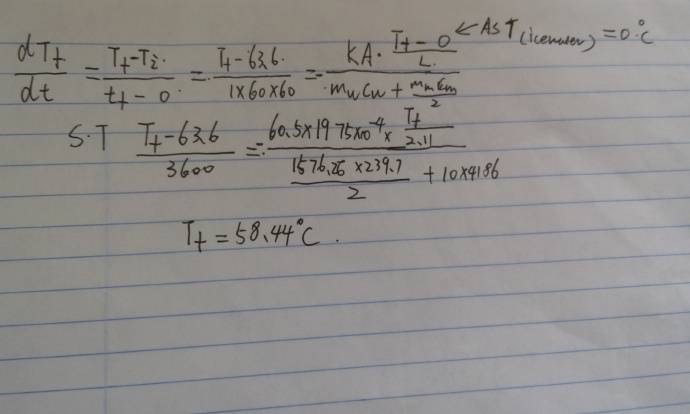 dT_f/dt = (T_f - T_i)/(t_f - 0) = (T_f - 63.6)/(1×60×60) = - (KA · (T_f - 0)/L)/(m_w c_w + m_m c_m/2) ← As T(icewater) = 0°C
S.T (T_f - 63.6)/3600 = - (60.5×19.75×10^-4 × T_f/2.11)/((1576.26 × 239.7)/2 + 10×4186)
T_f = 58.44°C.